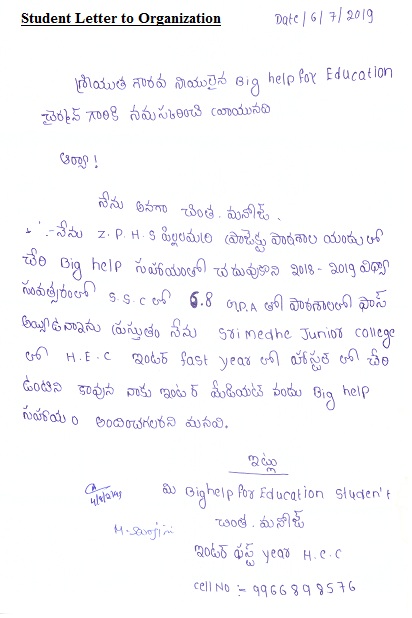 Student Letter to Organization
Date/6/7/2019
శ్రీయుత గౌరవ నీయులైన Big help for Education
చైర్మన్ గారికి నమస్కరించి వ్రాయునది
ఆర్యా!
నేను అనగా చింత. మనోజ్.
నేను Z.P.H.S పిల్లలమర్రి ప్రాజెక్టు పాఠశాల యందు లో
చేరి Big help సహాయంతో చదువుకుని 2018-2019 విద్యా
సంవత్సరంలో S.S.C లో 6.8 G.P.A తో పాఠశాలలో ఫాస్
అయ్యిఉన్నాను ప్రస్తుతం నేను Srimedhe Junior college
లో H.E.C ఇంటర్ fast year లో హాస్టల్ లో చేరి
ఉంటిని కావున నాకు ఇంటర్ మీడియట్ నందు Big help
సహాయం అందించగలరని మనవి.
ఇట్లు
మి Bighelp for Education Studen't
చింత. మనోజ్
ఇంటర్ ఫస్ట్ year H.E.C
cell No :- 9966898576